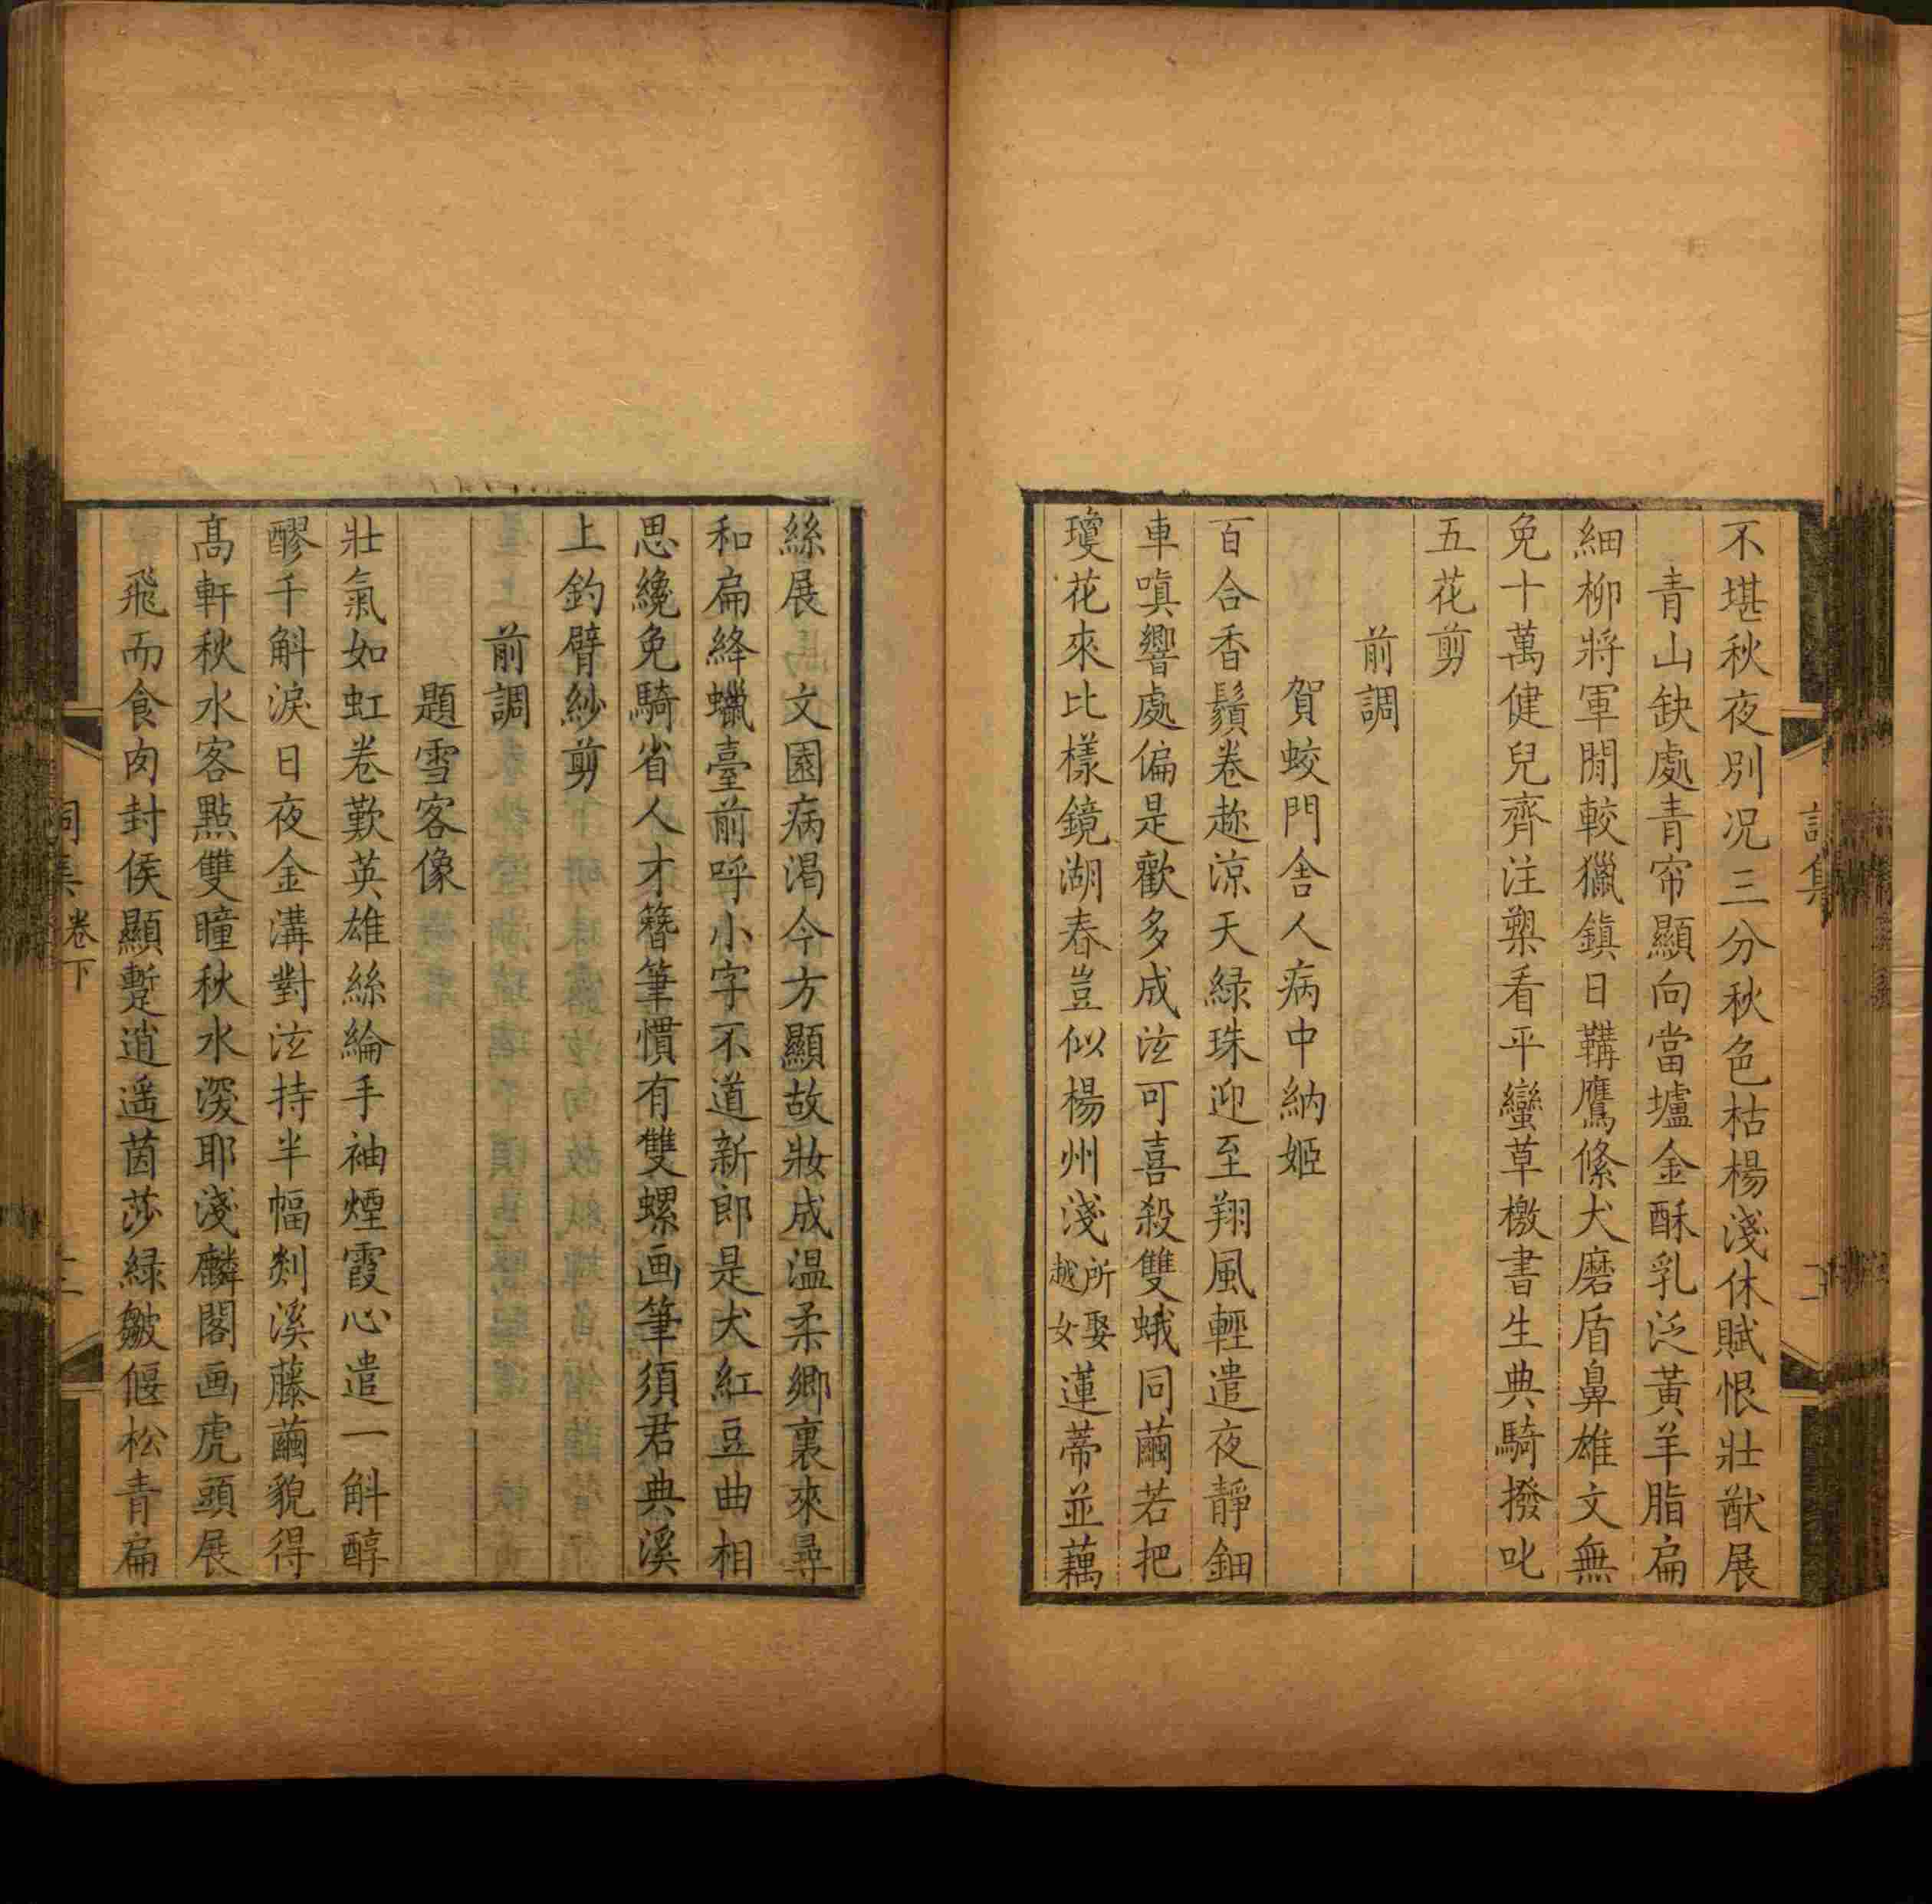 不堪秋夜別况三分秋色枯楊淺休賦恨壯猷展
青山缺處青帘顯向當壚金酥乳泛黃羊脂扁
細柳將軍閒較獵鎮日鞲鷹絛犬磨盾鼻雄文無
免十萬健兒齊注槊看平蠻草檄書生典騎撥叱
五花剪
前調
賀蛟門舍人病中納姬
百合香鬚卷趂涼天綠珠迎至翔風輕遣夜靜鈿
車嗔響處偏是歡多成泣可喜殺雙蛾同繭若把
瓊花來比樣鏡湖春豈似楊州淺所娶越女蓮蒂並藕
絲展
文園病渴今方顯故妝成温柔鄉裏來尋
和扁絳蠟臺前呼小字不道新郎是犬紅豆曲相
思纔免騎省人才簪筆慣有雙螺画筆須君典溪
上釣臂紗剪
前調
題雪客像
壯氣如虹卷歎英雄絲綸手袖煙霞心遣一斛醇
醪千斛淚日夜金溝對泣持半幅剡溪藤繭貌得
髙軒秋水客點雙瞳秋水深耶淺麟閣画虎頭展
飛而食肉封侯顯蹔逍遥茵莎綠皺偃松青扁
卷下